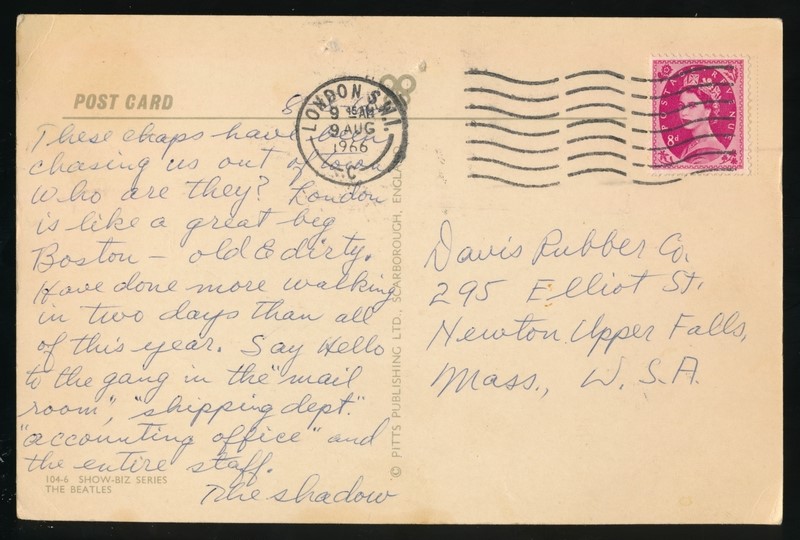 POST CARD
These chaps have been
chasing us out of town
Who are they? London
is like a great big
Boston — old & dirty.
Have done more walking
in two days than all
of this year. Say Hello
to the gang in the "mail
room", "shipping dept."
"accounting office" and
the entire staff.
The shadow
104-6 SHOW-BIZ SERIES
THE BEATLES
© PITTS PUBLISHING LTD., SCARBOROUGH, ENGLAND
LONDON S.W.1.
9 15AM
9 AUG
1966
C
POSTAGE REVENUE
8d
Davis Rubber Co.
295 Elliot St.
Newton Upper Falls,
Mass., U.S.A.